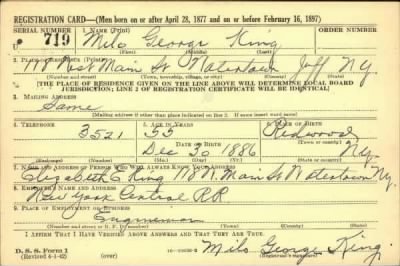 REGISTRATION CARD—(Men born on or after April 28, 1877 and on or before February 16, 1897)
SERIAL NUMBER 1. NAME (Print) ORDER NUMBER
U 719 Milo George King
(First) (Middle) (Last)
2. PLACE OF RESIDENCE (Print)
118 West Main St Watertown Jeff N.Y.
(Number and street) (Town, township, village, or city) (County) (State)
[THE PLACE OF RESIDENCE GIVEN ON THE LINE ABOVE WILL DETERMINE LOCAL BOARD
JURISDICTION; LINE 2 OF REGISTRATION CERTIFICATE WILL BE IDENTICAL]
3. MAILING ADDRESS
Same
(Mailing address if other than place indicated on line 2. If same insert word same)
4. TELEPHONE 5. AGE IN YEARS 6. PLACE OF BIRTH
3521 55 Redwood
DATE OF BIRTH (Town or county)
Dec 30 1886 N.Y.
(Mo.) (Day) (Yr.) (State or country)
7. NAME AND ADDRESS OF PERSON WHO WILL ALWAYS KNOW YOUR ADDRESS
Elizabeth E King 118 W. Main St Watertown N.Y.
8. EMPLOYER'S NAME AND ADDRESS
New York Central R.R.
9. PLACE OF EMPLOYMENT OR BUSINESS
Engineman
(Number and street or R. F. D. number) (Town) (County) (State)
I AFFIRM THAT I HAVE VERIFIED ABOVE ANSWERS AND THAT THEY ARE TRUE.
D. S. S. Form 1
(Revised 4-1-42) (over) Milo George King
(Registrant's signature)